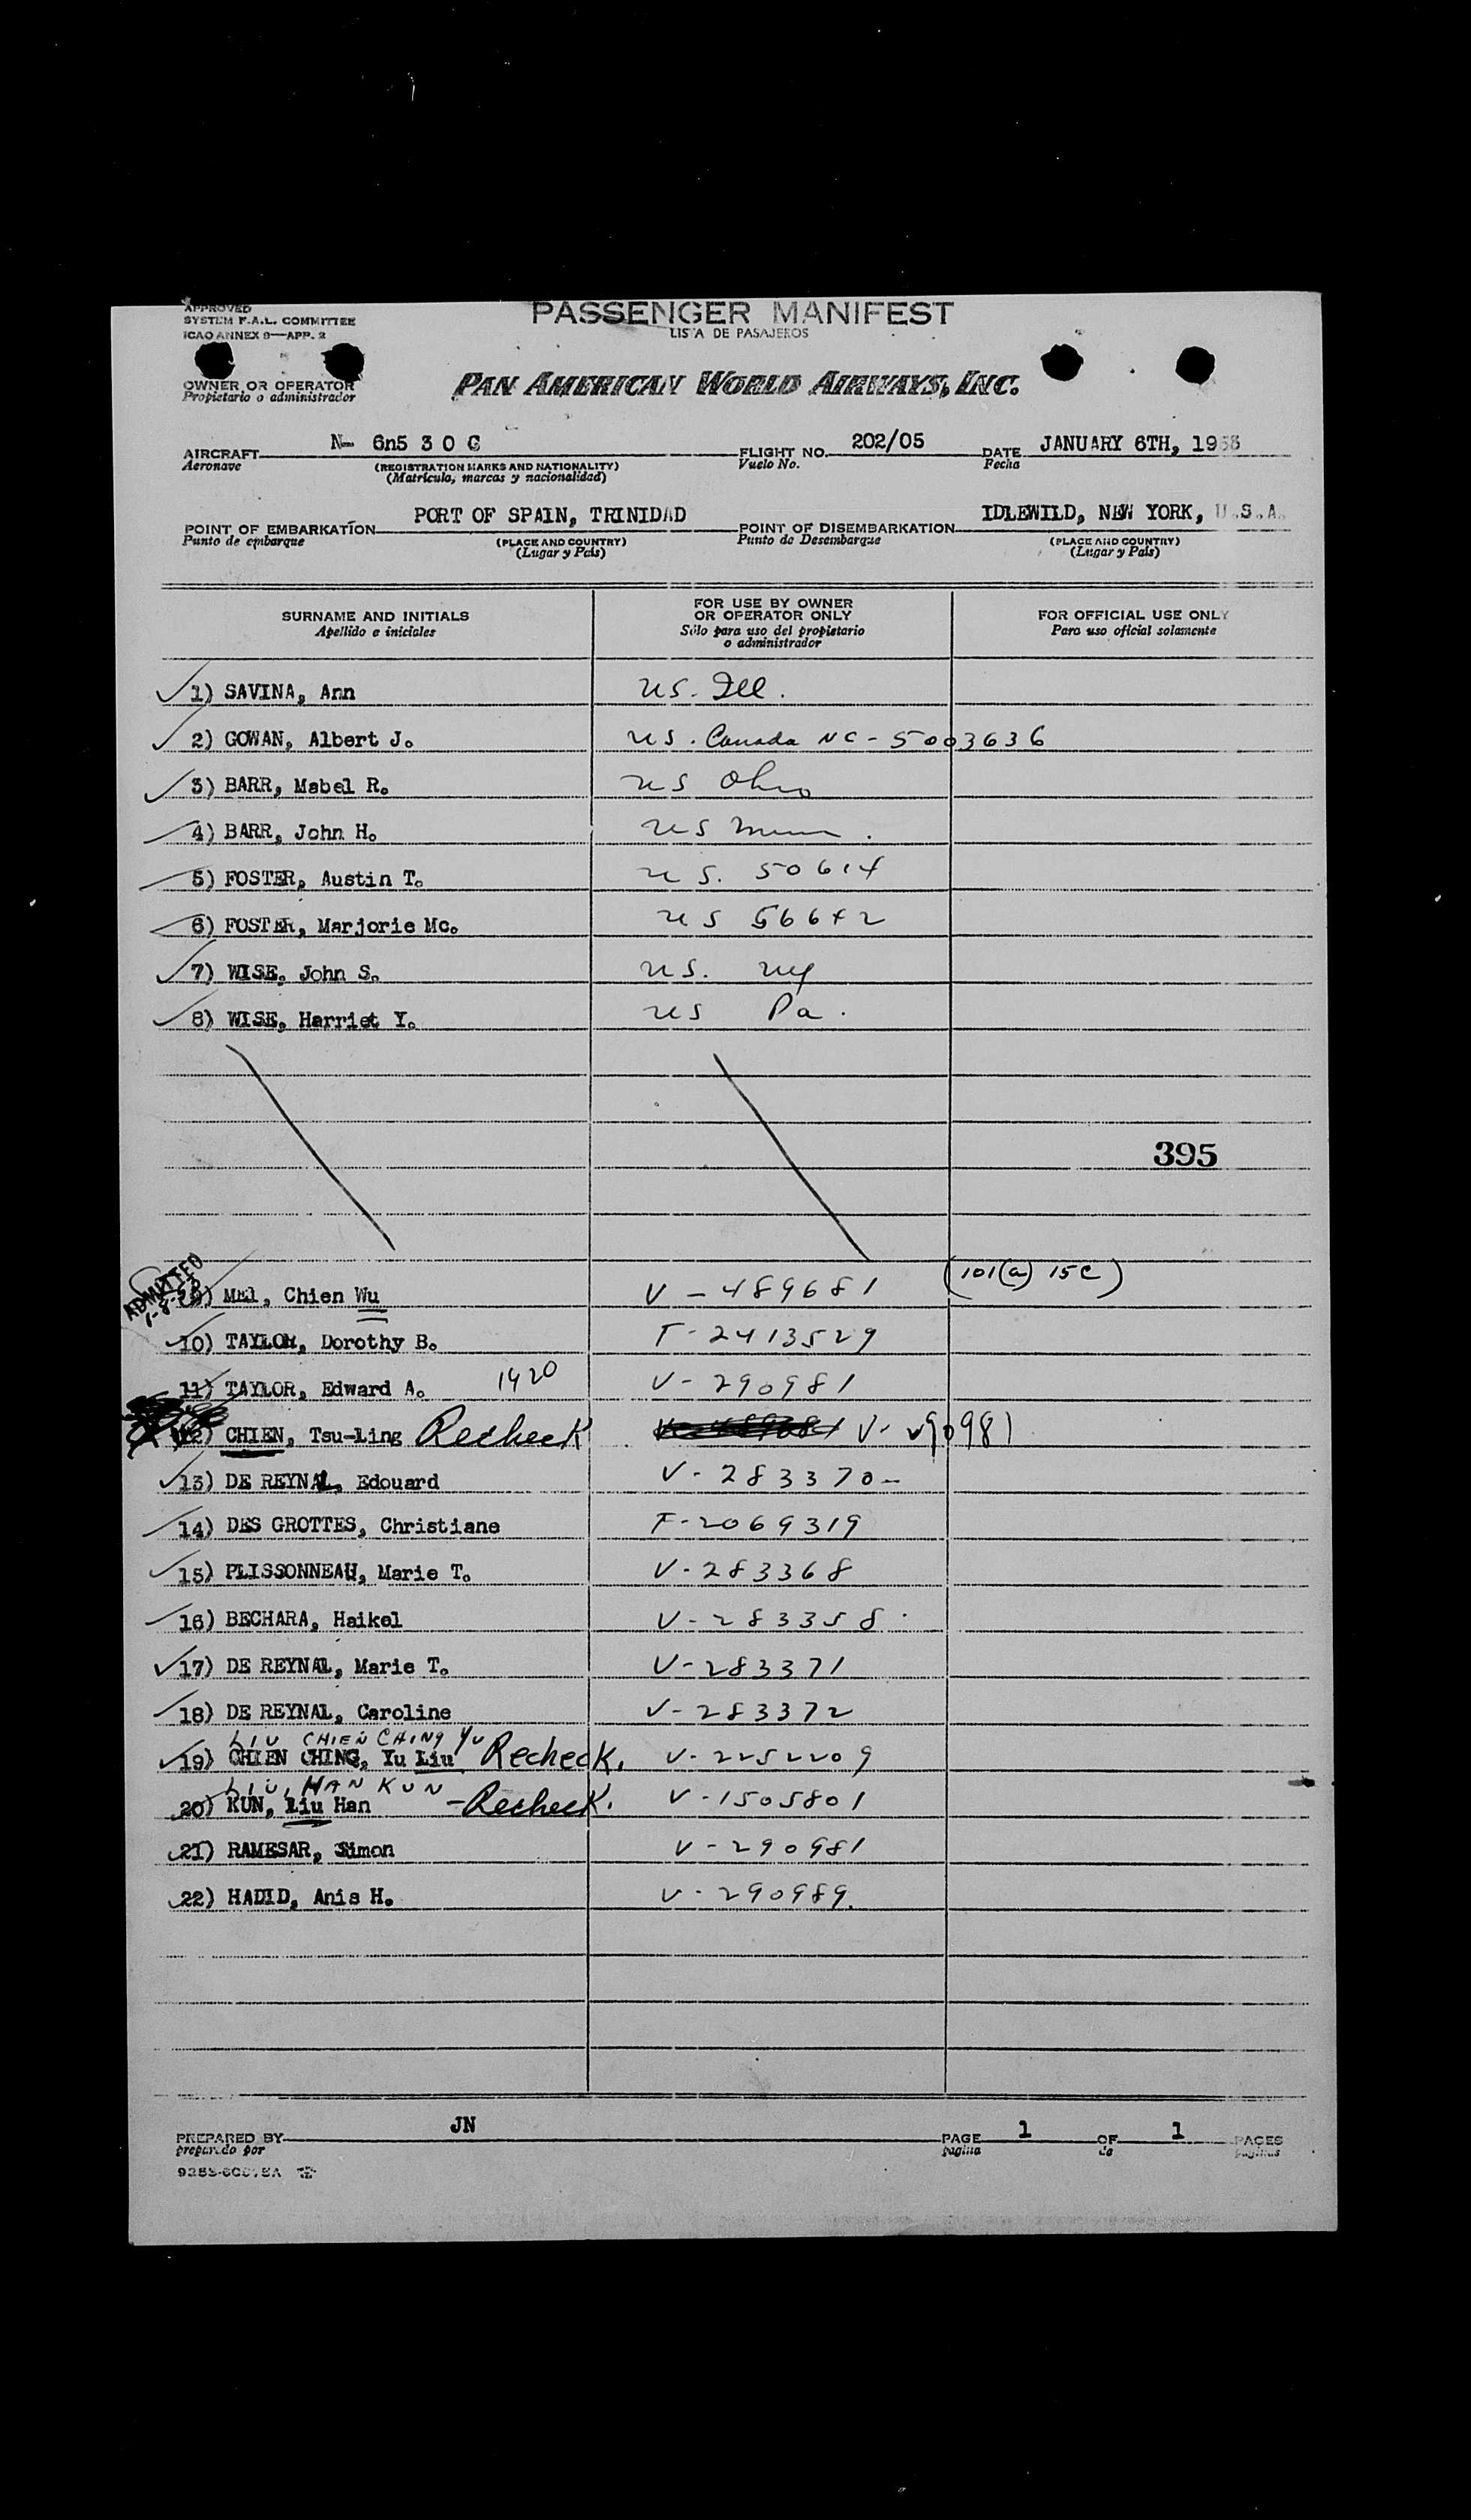 APPROVED
SYSTEM F.A.L. COMMITTEE
ICAO ANNEX 9—APP. 2
PASSENGER MANIFEST
LISTA DE PASAJEROS
OWNER OR OPERATOR
Propietario o administrador
PAN AMERICAN WORLD AIRWAYS, INC.
AIRCRAFT N- 6n5 3 0 C FLIGHT NO. 202/05 DATE JANUARY 6TH, 1953
Aeronave (REGISTRATION MARKS AND NATIONALITY) Vuelo No. Fecha
(Matrícula, marcas y nacionalidad)
POINT OF EMBARKATION PORT OF SPAIN, TRINIDAD POINT OF DISEMBARKATION IDLEWILD, NEW YORK, U.S.A.
Punto de embarque (PLACE AND COUNTRY) Punto de Desembarque (PLACE AND COUNTRY)
(Lugar y País) (Lugar y País)
SURNAME AND INITIALS FOR USE BY OWNER OR OPERATOR ONLY FOR OFFICIAL USE ONLY
Apellido e iniciales Sólo para uso del propietario o administrador Para uso oficial solamente
1) SAVINA, Ann US. Ill.
2) GOWAN, Albert J. US. Canada NC - 5003636
3) BARR, Mabel R. US Ohio
4) BARR, John H. US Minn.
5) FOSTER, Austin T. US. 50614
6) FOSTER, Marjorie Mc. US 56642
7) WISE, John S. US. NY
8) WISE, Harriet Y. US Pa.
395
ADMITTED
1-8-53
9) MEI, Chien Wu V - 489681 (101(a) 15C)
10) TAYLOR, Dorothy B. T-2413529
11) TAYLOR, Edward A. 1420 V-290981
12) CHIEN, Tsu-Ling Recheck V-290981
13) DE REYNAL, Edouard V-283370-
14) DES GROTTES, Christiane T-2069319
15) PLISSONNEAU, Marie T. V-283368
16) BECHARA, Haikel V-283358
17) DE REYNAL, Marie T. V-283371
18) DE REYNAL, Caroline V-283372
LIU CHIEN CHING YU
19) CHIEN CHING, Yu Liu Recheck. V-2252209
LIU, HAN KUN
20) KUN, Liu Han -Recheck. V-1505801
21) RAMESAR, Simon V-290981
22) HADID, Anis H. V-290989.
PREPARED BY JN PAGE 1 OF 1 PAGES
preparado por pagina de paginas